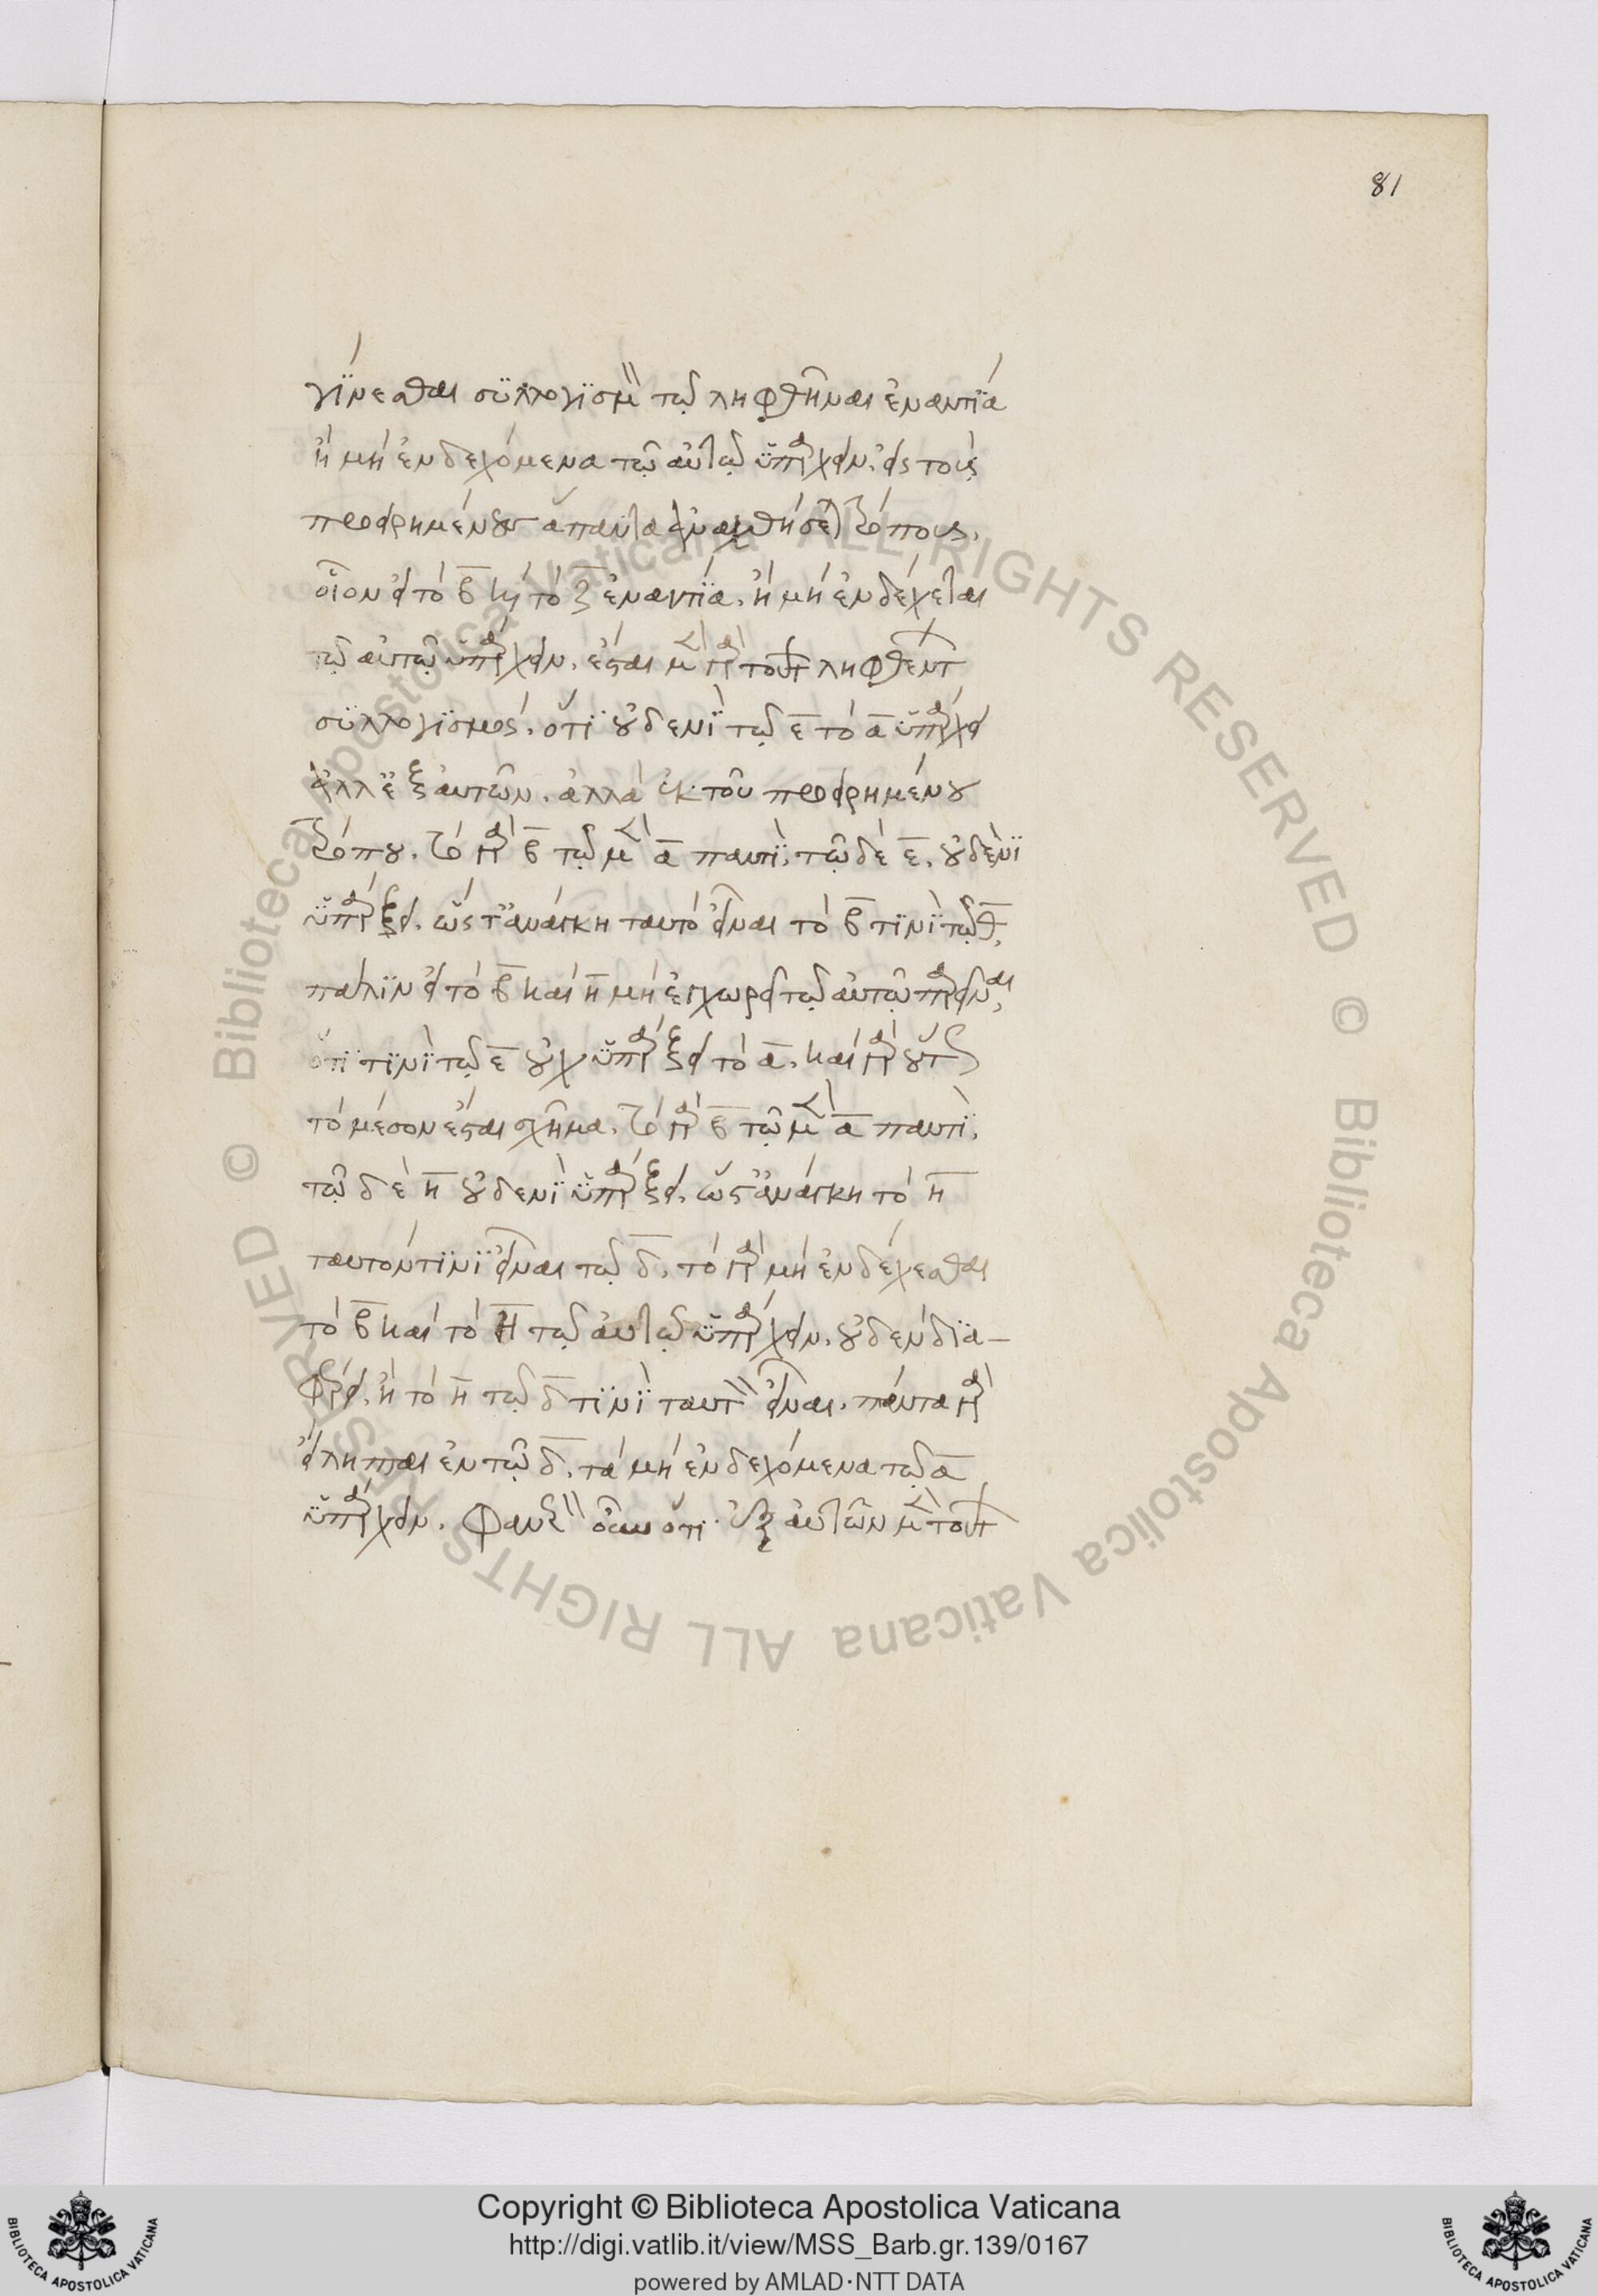 81
γίνεσθαι συλλογισμοὺς τῷ ληφθῆναι ἐναντία
ἢ μὴ ἐνδεχόμενα τῷ αὐτῷ ὑπάρχειν. εἰς τοὺς
προειρημένους ἅπαντα ἀναχθήσεται τρόπους.
οἷον εἰ τὸ β καὶ τὸ ζ ἐναντία. ἢ μὴ ἐνδέχεται
τῷ αὐτῷ ὑπάρχειν. ἔσται μὲν γὰρ τούτων ληφθέντων
συλλογισμός. ὅτι οὐδενὶ τῷ ε τὸ α ὑπάρχει
ἀλλ' ἐξ αὐτῶν. ἀλλὰ ἐκ τοῦ προειρημένου
τρόπου. τὸ γὰρ β τῷ μὲν α παντὶ. τῷ δὲ ε. οὐδενὶ
ὑπάρξει. ὥστ' ἀνάγκη ταυτὸ εἶναι τὸ β τινὶ τῷ θ.
πάλιν εἰ τὸ β καὶ η μὴ ἐγχωρεῖ τῷ αὐτῷ παρεῖναι,
ὅτι τινὶ τῷ ε οὐχ ὑπάρξει τὸ α. καὶ γὰρ οὕτως
τὸ μέσον ἔσται σχῆμα. τὸ γὰρ β τῷ μὲν α παντὶ.
τῷ δὲ η οὐδενὶ ὑπάρξει. ὥστ' ἀνάγκη τὸ η
ταυτόν τινὶ εἶναι τῷ δ. τὸ γὰρ μὴ ἐνδέχεσθαι
τὸ β καὶ τὸ η τῷ αὐτῷ ὑπάρχειν. οὐδὲν δια-
φέρει. ἢ τὸ η τῷ δ τινὶ ταυτὸν εἶναι. πάντα γὰρ
εἴληπται ἐν τῷ δ. τὰ μὴ ἐνδεχόμενα τῷ α
ὑπάρχειν. φανερὸν οὖν ὅτι ἐξ αὐτῶν μὲν τούτων
Copyright © Biblioteca Apostolica Vaticana
http://digi.vatlib.it/view/MSS_Barb.gr.139/0167
powered by AMLAD·NTT DATA
BIBLIOTECA APOSTOLICA VATICANA
BIBLIOTECA APOSTOLICA VATICANA
© Biblioteca Apostolica Vaticana ALL RIGHTS RESERVED © Biblioteca Apostolica Vaticana ALL RIGHTS RESERVED